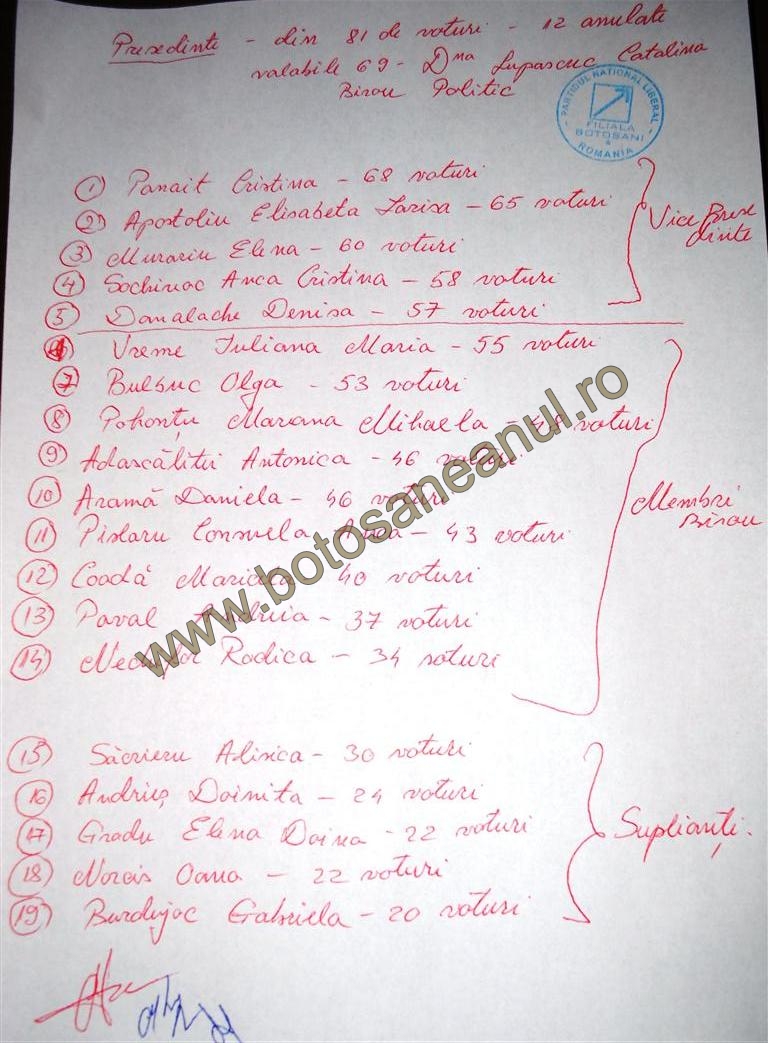 Presedinte - din 81 de voturi - 12 anulate
valabile 69 - Dna Lupascuc Catalina
Birou Politic
PARTIDUL NATIONAL LIBERAL
FILIALA
BOTOSANI
ROMANIA
1 Panait Cristina - 68 voturi
2 Apostoliu Elisabeta Larisa - 65 voturi
3 Murariu Elena - 60 voturi
4 Sochirac Anca Cristina - 58 voturi
5 Damalache Denisa - 57 voturi
Vice Prese
dinte
Vreme Iuliana Maria - 55 voturi
7 Bulbuc Olga - 53 voturi
8 Pohonțu Mariana Mihaela - 48 voturi
9 Adascăliții Antonica - 46 voturi
10 Aramă Daniela - 46 voturi
11 Pislaru Consuela Anca - 43 voturi
12 Coadă Maricica 40 voturi
13 Paval Andreia - 37 voturi
14 Nechifor Rodica - 34 voturi
Membri
Birou
15 Săcrieru Alisica - 30 voturi
16 Andrieș Doinita - 24 voturi
17 Gradu Elena Doina - 22 voturi
18 Norcis Oana - 22 voturi
19 Burdujoc Gabriela - 20 voturi
Suplianți.
www.botosaneanul.ro